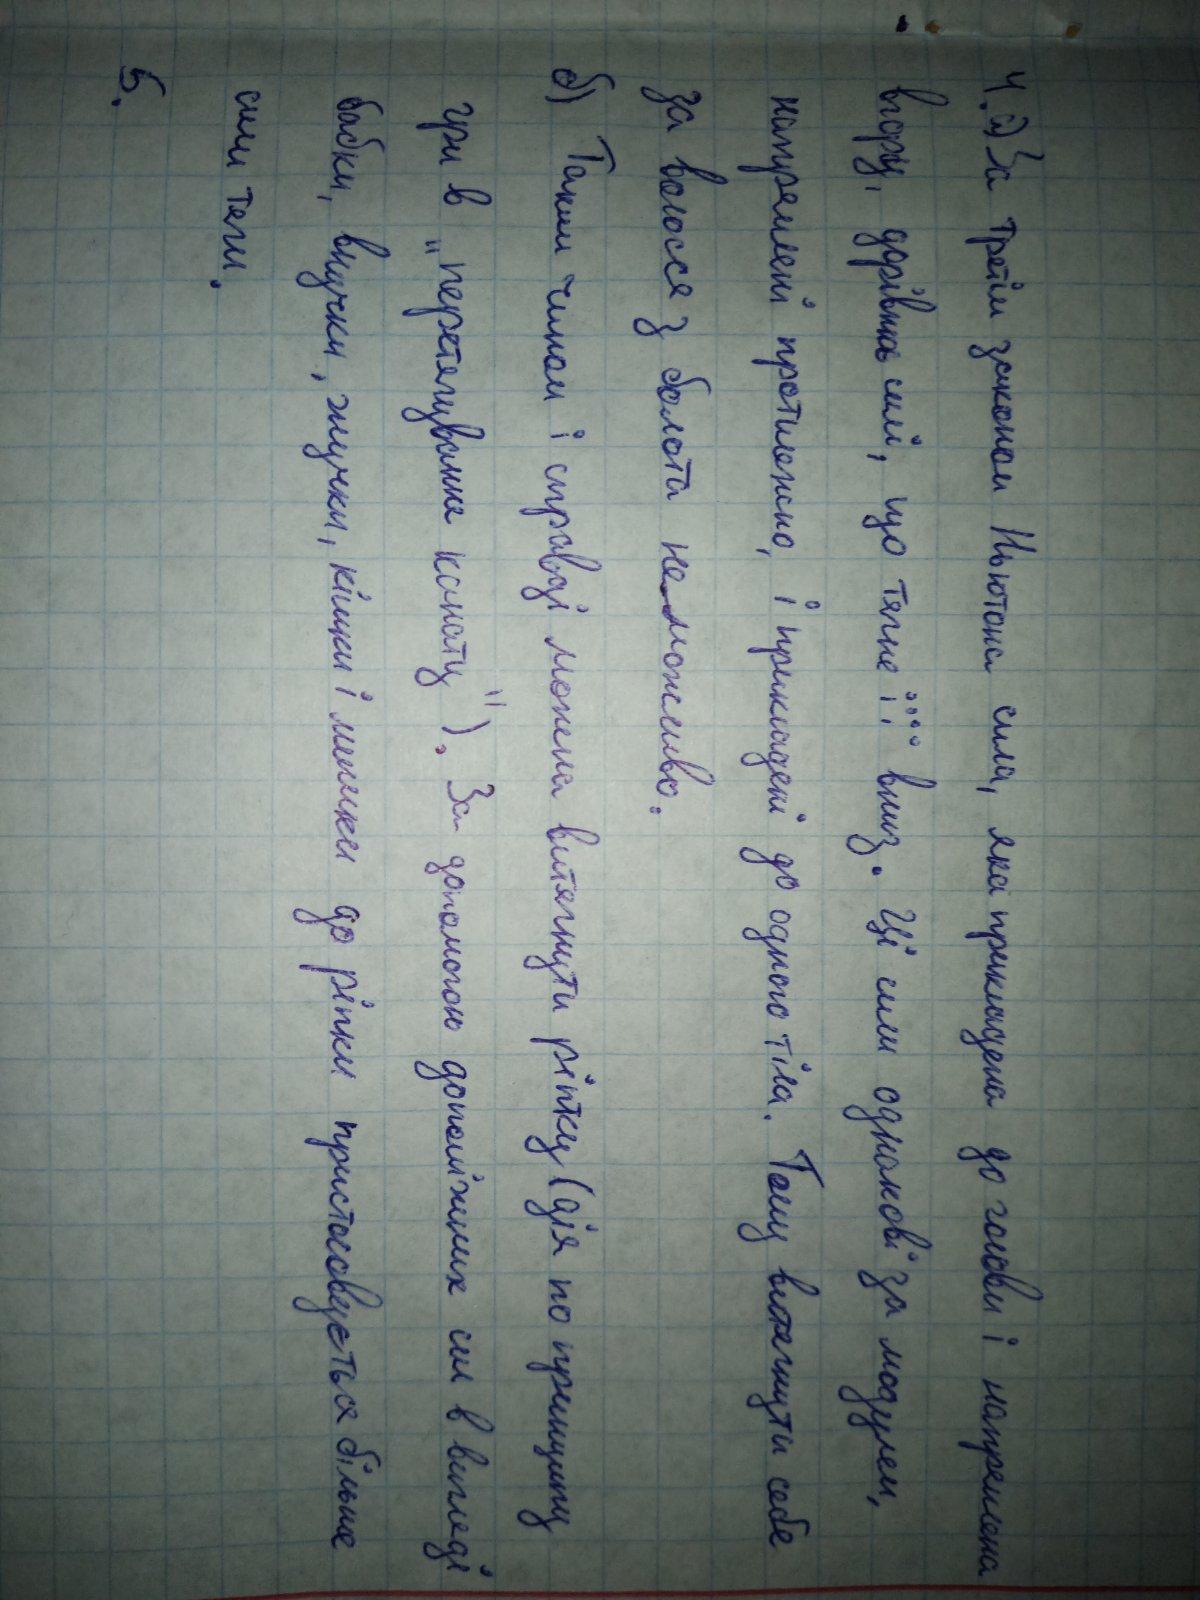 4. а) За третім законом Ньютона сила, яка прикладена до голови і напрямлена
вгору, дорівнює силі, що тягне її вниз. Ці сили однакові за модулем,
напрямлені протилежно, і прикладені до одного тіла. Тому витягнути себе
за волосся з болота неможливо.
б) Таким чином і справді можна витягнути ріпку (дія по принципу
гри в "перетягування канату"). За допомогою допоміжних сил в вигляді
бабки, внучки, жучки, кішки і мишки до ріпки пристосовується більше
сили тяги.
5.